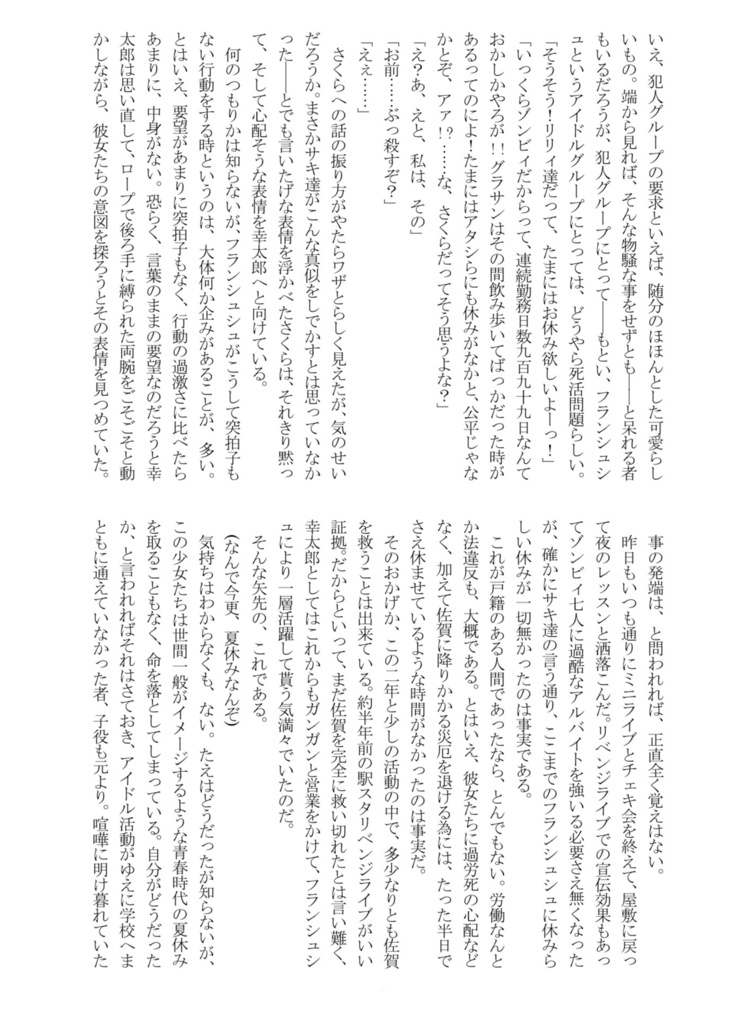 いえ、犯人グループの要求といえば、随分のほほんとした可愛らし
いもの。端から見れば、そんな物騒な事をせずとも――と呆れる者
もいるだろうが、犯人グループにとって――もとい、フランシュシ
ュというアイドルグループにとっては、どうやら死活問題らしい。
「そうそう！リリィ達だって、たまにはお休み欲しいよーっ！」
「いっくらゾンビィだからって、連続勤務日数九百九十九日なんて
おかしかやろが!!グラサンはその間飲み歩いてばっかだった時が
あるってのによ！たまにはアタシらにも休みがなかと、公平じゃな
かとぞ、アァ!?……な、さくらだってそう思うよな？」
「え？あ、えと、私は、その」
「お前……ぶっ殺すぞ？」
「えぇ……」
さくらへの話の振り方がやたらワザとらしく見えたが、気のせい
だろうか。まさかサキ達がこんな真似をしでかすとは思っていなか
った――とでも言いたげな表情を浮かべたさくらは、それきり黙っ
て、そして心配そうな表情を幸太郎へと向けている。
何のつもりかは知らないが、フランシュシュがこうして突拍子も
ない行動をする時というのは、大体何か企みがあることが、多い。
とはいえ、要望があまりに突拍子もなく、行動の過激さに比べたら
あまりに、中身がない。恐らく、言葉のままの要望なのだろうと幸
太郎は思い直して、ロープで後ろ手に縛られた両腕をごそごそと動
かしながら、彼女たちの意図を探ろうとその表情を見つめていた。
事の発端は、と問われれば、正直全く覚えはない。
昨日もいつも通りにミニライブとチェキ会を終えて、屋敷に戻っ
て夜のレッスンと洒落こんだ。リベンジライブでの宣伝効果もあっ
てゾンビィ七人に過酷なアルバイトを強いる必要さえ無くなった
が、確かにサキ達の言う通り、ここまでのフランシュシュに休みら
しい休みが一切無かったのは事実である。
これが戸籍のある人間であったなら、とんでもない。労働なんと
か法違反も、大概である。とはいえ、彼女たちに過労死の心配など
なく、加えて佐賀に降りかかる災厄を退ける為には、たった半日で
さえ休ませているような時間がなかったのは事実だ。
そのおかげか、この二年と少しの活動の中で、多少なりとも佐賀
を救うことは出来ている。約半年前の駅スタリベンジライブがいい
証拠。だからといって、まだ佐賀を完全に救い切れたとは言い難く、
幸太郎としてはこれからもガンガンと営業をかけて、フランシュシ
ュにより一層活躍して貰う気満々でいたのだ。
そんな矢先の、これである。
(なんで今更、夏休みなんぞ)
気持ちはわからなくも、ない。たえはどうだったが知らないが、
この少女たちは世間一般がイメージするような青春時代の夏休み
を取ることもなく、命を落としてしまっている。自分がどうだった
か、と言われればそれはさておき、アイドル活動がゆえに学校へま
ともに通えていなかった者、子役も元より。喧嘩に明け暮れていた